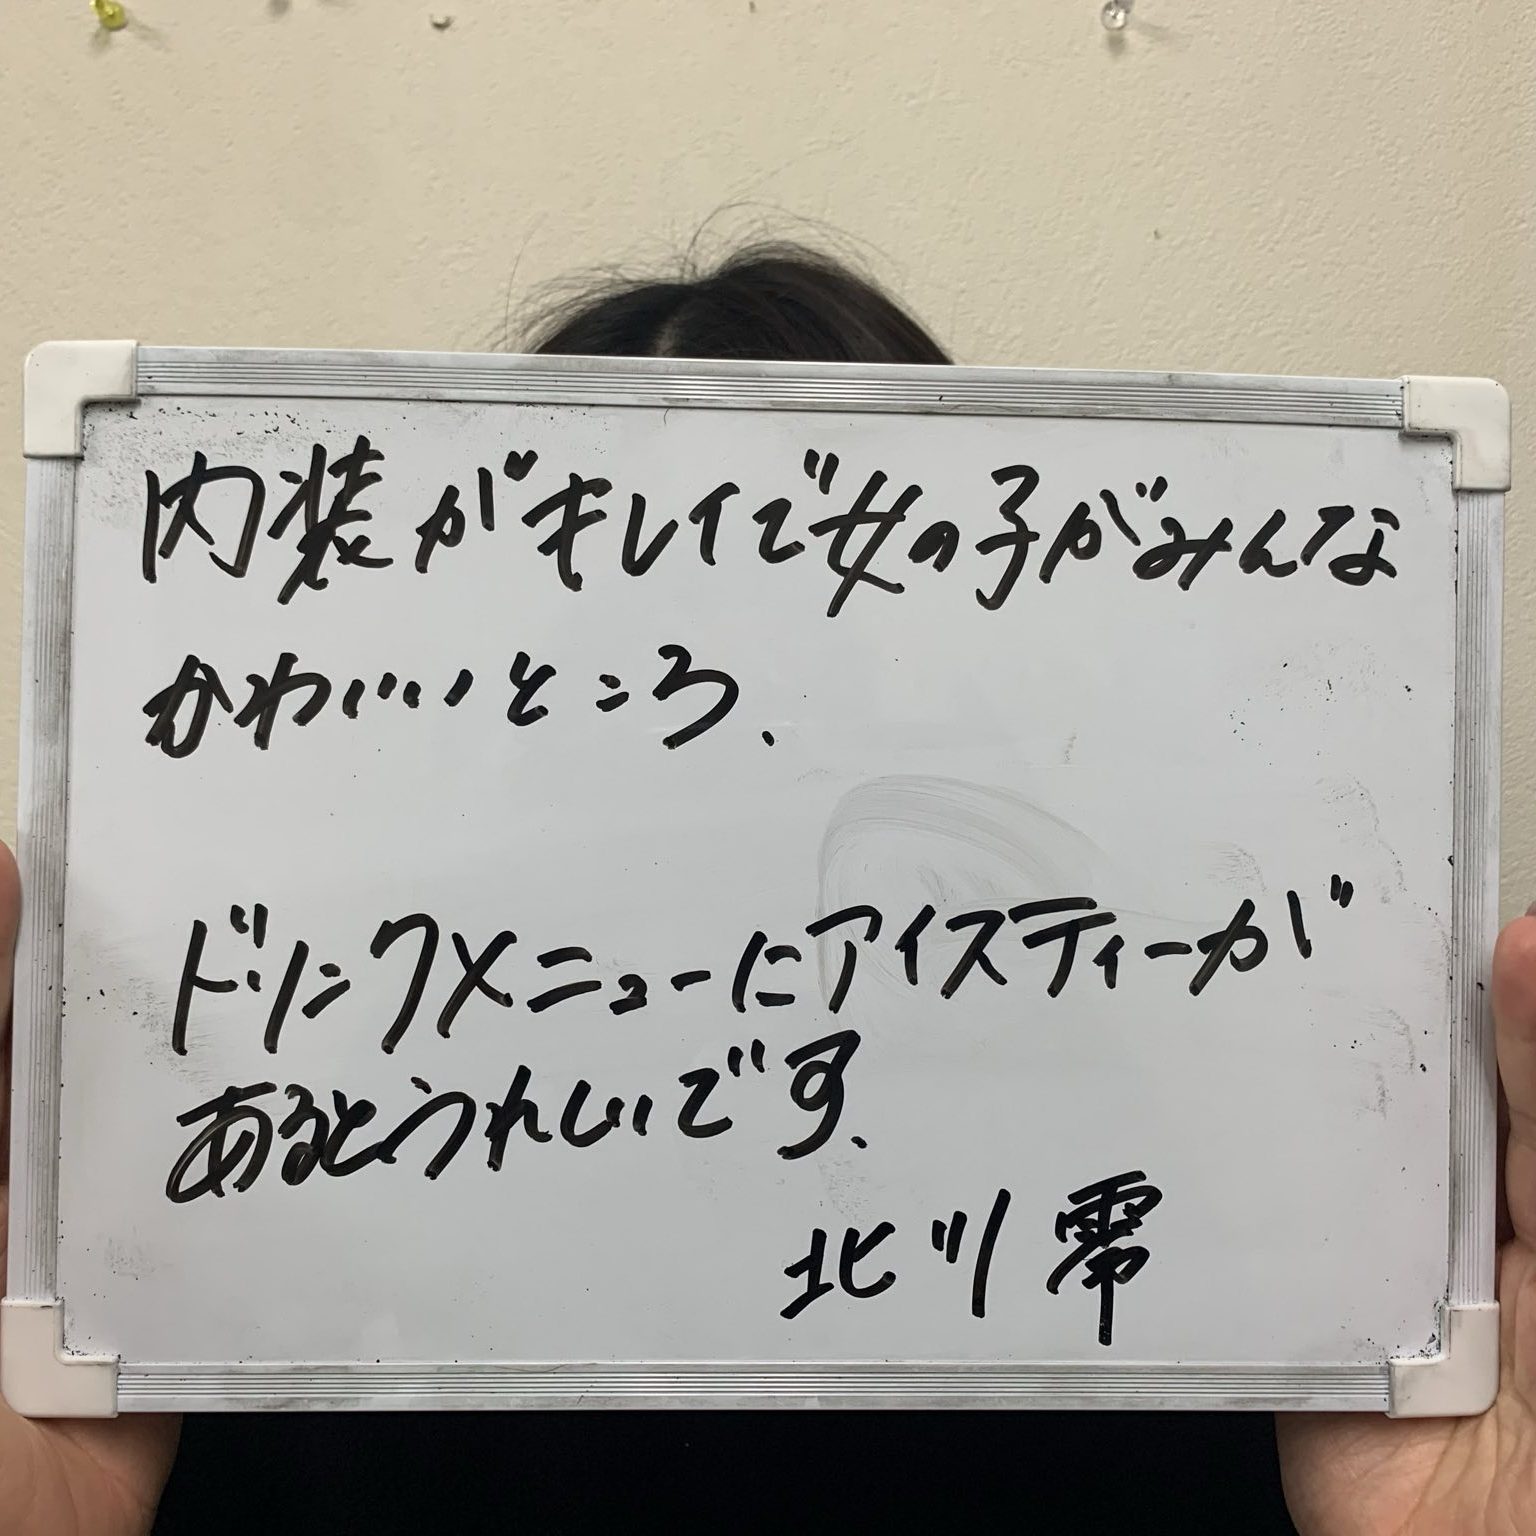 内装がキレイで女の子がみんな
かわいいところ.
ドリンクメニューにアイスティーが
あるとうれしいです.
北川 零